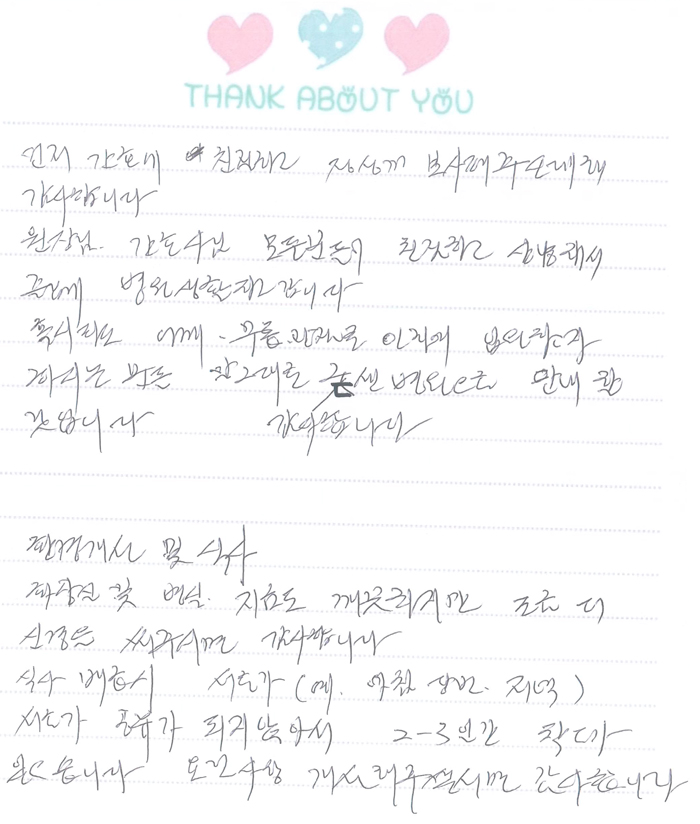 THANK ABOUT YOU
먼저 간호에 친절하고 정성껏 보살펴주신데 대해
감사합니다
원장님. 간호사님 모든분들이 친절하고 상냥해서
병원생활하고 갑니다
혹시라도 어깨. 무릎 관계로 입원하고자
하시는 분은 말그대로 굿센 병원으로 안내 할
것입니다 감사합니다
환경개선 및 식사
화장실 및 병실. 지금도 깨끗하지만 조금 더
신경을 써주시면 감사합니다
식사 배급시 서로가 (예. 아침 점심. 저녁)
서로가 공유가 되지않아서 2-3인간 착오가
있습니다 요런사항 개선해주셨으면 감사합니다